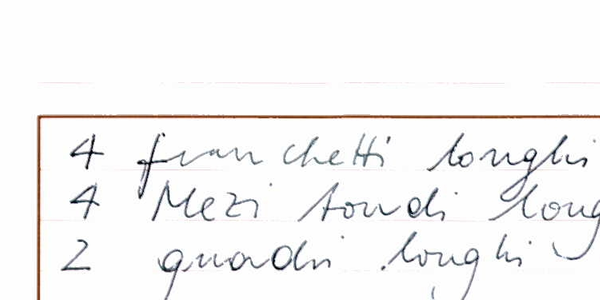 4 fianchetti longhi
4 Mezi tondi long
2 quadri longhi